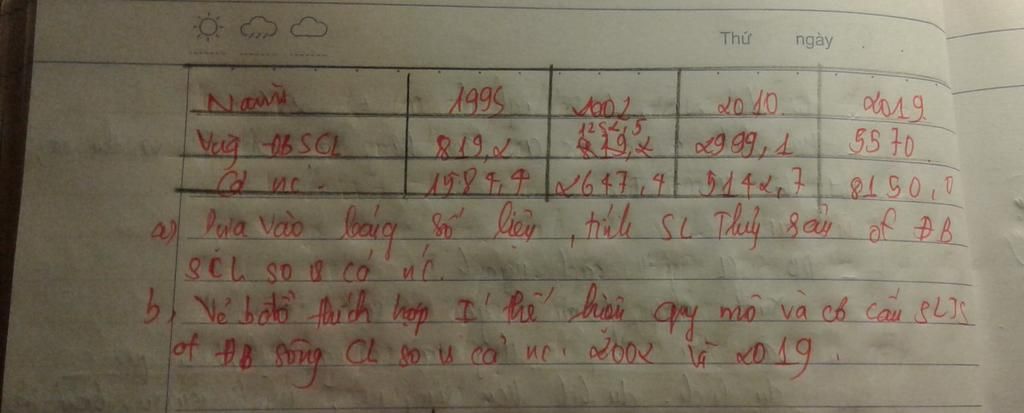 Thứ ngày
Năm 1995 2002 2010 2019
Vùg ĐB SCL 819,2 1252,5 2999,1 5570
Cả nc 1584,4 2647,4 5142,7 8150,0
a) Dựa vào bảng số liệu, tính SL Thuỷ sản of ĐB
SCL so v cả nc.
b, Vẽ bđồ thích hợp thể hiện quy mô và cơ cấu SLTS
of ĐB sông CL so v cả nc. 2002 và 2019.